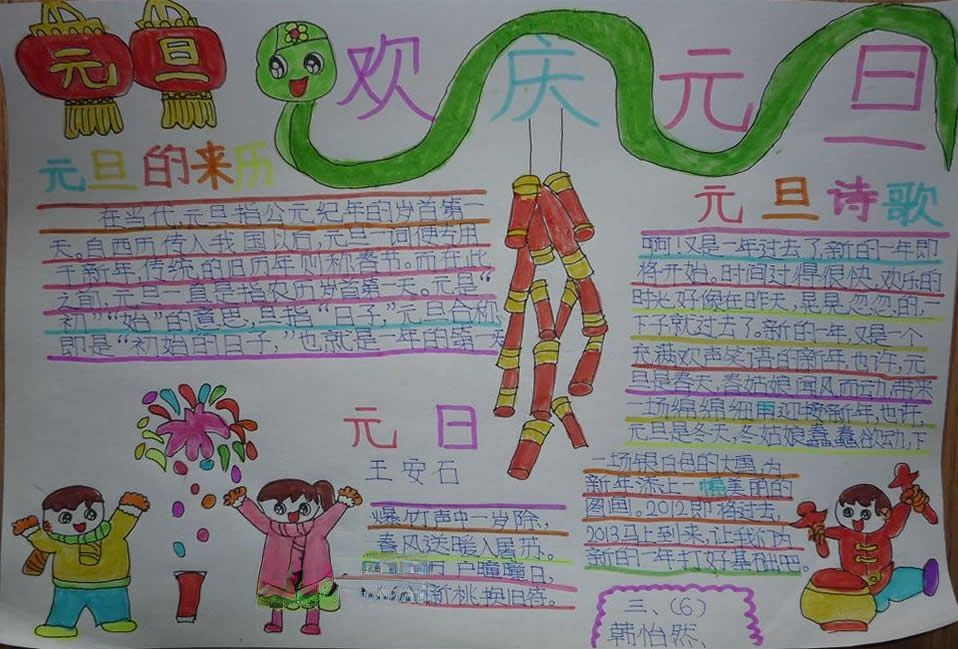 元旦
欢庆元旦
元旦的来历
在当代,元旦指公元纪年的岁首第一
天。自西历传入我国以后,元旦一词便专用
于新年,传统的旧历年则称春节。而在此
之前,元旦一直是指农历岁首第一天。元是“
初”“始”的意思,旦指“日子,”元旦合称
即是“初始的日子,”也就是一年的第一天
元旦诗歌
啊!又是一年过去了新的一年即
将开始。时间过得很快,欢乐的
时光,好像在昨天,晃晃忽忽,的一
下子就过去了。新的一年,又是一个
充满欢声笑语的新年,也许,元
旦是春天,春姑娘闻风而动,带来
一场绵绵细雨迎接新年,也许,
元旦是冬天,冬姑娘蠢蠢欲动,下
一场银白色的大雪,为
新年添上一幅美丽的
图画。2012即将过去,
2013马上到来,让我们为
新的一年打好基础吧。
元日
王安石
爆竹声中一岁除,
春风送暖入屠苏。
万户曈曈日,
新桃换旧符。
三、(6)
韩怡然、